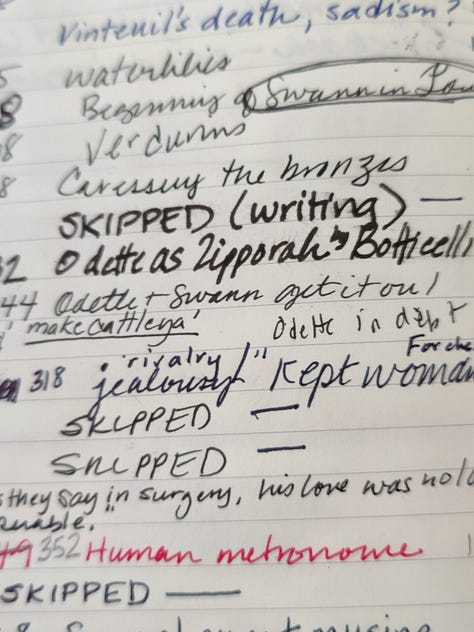 Vinteuil's death, sadism?
5 waterlilies
8 Beginning of Swann in
8 Verdurins
8 Caressing the bronzes
SKIPPED (writing) —
32 Odette as Zipporah's Botticelli
44 Odette + Swann get it on!
'make cattleya' Odette in debt
318 rivalry/jealousy/" For che
Kept woman
SKIPPED —
SKIPPED —
s they say in surgery, his love was no lo
erable."
49 352 Human metronome
SKIPPED —
musing